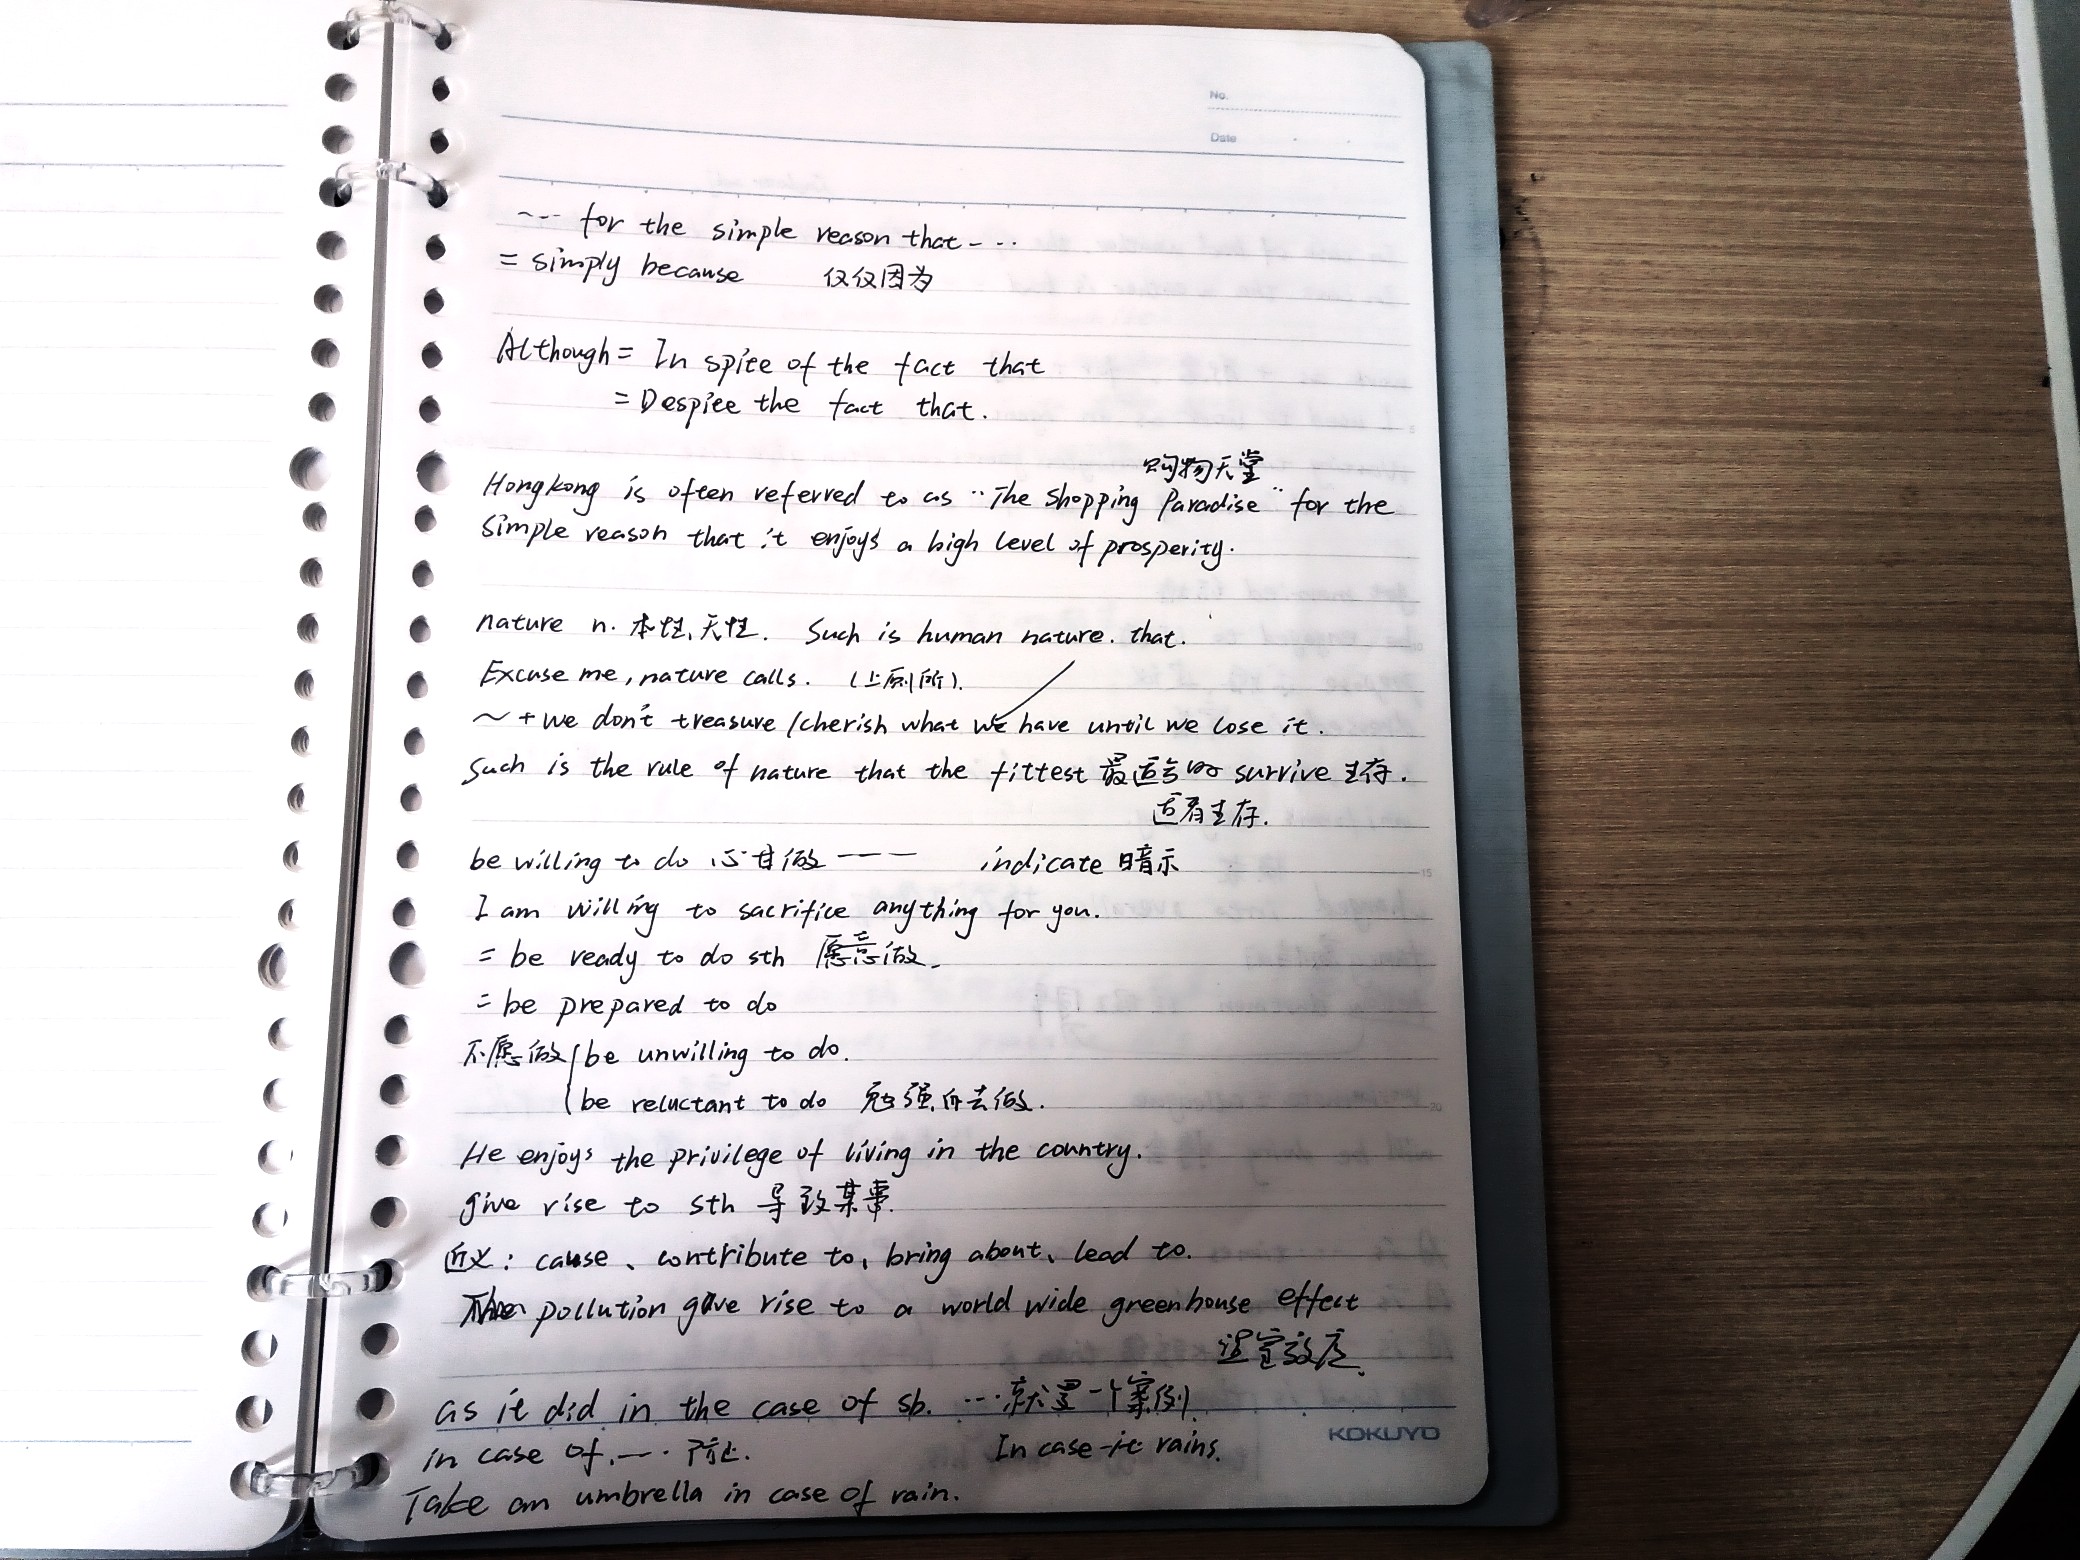 No.
Date
~-- for the simple reason that- ··
= simply because 仅仅因为
Although = In spite of the fact that
= Despite the fact that.
购物天堂
Hongkong is often referred to as "The Shopping Paradise" for the
simple reason that it enjoys a high level of prosperity.
nature n. 本性、天性. Such is human nature. that.
Excuse me, nature calls. (上厕所).
~ + we don't treasure / cherish what we have until we lose it.
Such is the rule of nature that the fittest 最适合的 survive 生存.
适者生存.
be willing to do 心甘做 —— indicate 暗示
I am willing to sacrifice anything for you.
= be ready to do sth 愿意做.
= be prepared to do
不愿做 be unwilling to do.
be reluctant to do 勉强而去做.
He enjoys the privilege of living in the country.
give rise to sth 导致某事.
近义: cause、contribute to、bring about、lead to.
pollution gave rise to a world wide greenhouse effect
温室效应.
as it did in the case of sb. ···就是一个案例.
KOKUYO
in case of.—· 防止. In case it rains.
Take an umbrella in case of rain.